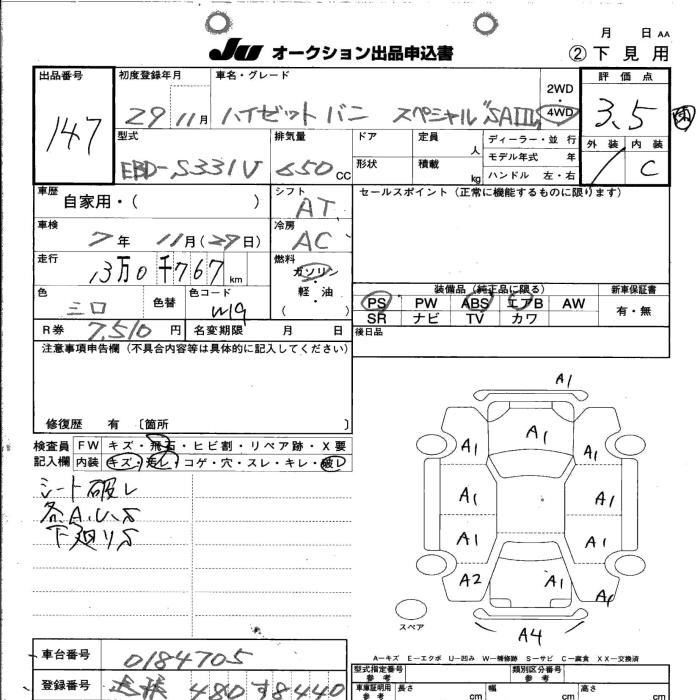 月 日 AA
JU オークション出品申込書 ②下見用
出品番号 初度登録年月 車名・グレード 2WD・4WD 評価点
147 29 11月 ハイゼットバン スペシャル"SAIII" 3.5
型式 排気量 ドア 定員 人 ディーラー・並行 外装 内装
EBD-S331V 650 CC 形状 積載 kg モデル年式 年 C
ハンドル 左・右
車歴 自家用・( ) シフト AT セールスポイント (正常に機能するものに限ります)
車検 7年 11月(29日) 冷房 AC
走行 13万0千767 km 燃料 ガソリン・軽・油 ( )
色 シロ 色替 色コード W19
装備品 (純正品に限る) 新車保証書
PS PW ABS エアB AW 有・無
SR ナビ TV カワ
R券 7,510円 名変期限 月 日 後日品
注意事項申告欄 (不具合内容等は具体的に記入してください)
修復歴 有 〔箇所 〕
検査員 FW キズ・飛石・ヒビ割・リペア跡・X要
記入欄 内装 キズ・汚レ・コゲ・穴・スレ・キレ・破レ
シート破レ
各A.U.S
下廻りS
A1
A1
A1 A1
A1 A1
A1 A1
A2 A1
スペア A4
A−キズ E−エクボ U−凹み W−補修跡 S−サビ C−腐食 XX−交換済
車台番号 0184705
登録番号 480 す8440
型式指定番号 参考 類別区分番号 参考
車庫証明用 参考 長さ cm 幅 cm 高さ cm